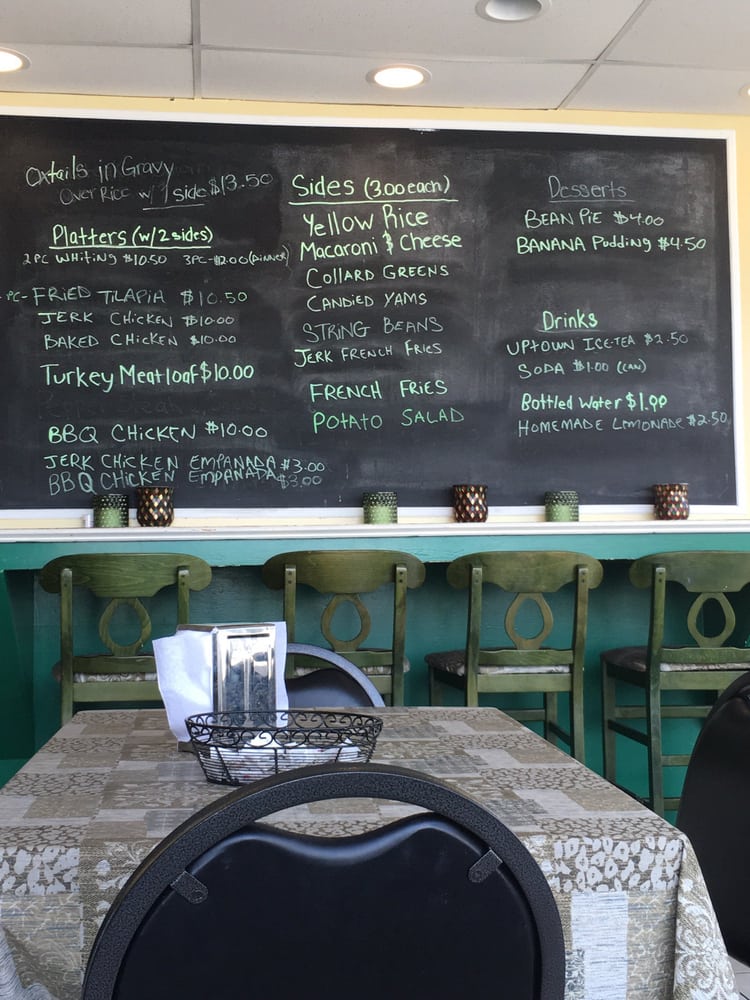 Oxtails in Gravy
Over Rice w/ 1 side $13.50
Platters (w/2 sides)
2PC Whiting $10.50 3PC-$12.00 (Dinner)
PC-FRIED TILAPIA $10.50
JERK CHICKEN $10.00
BAKED CHICKEN $10.00
Turkey Meatloaf $10.00
BBQ CHICKEN $10.00
JERK CHICKEN EMPANADA $3.00
BBQ CHICKEN EMPANADA $3.00
Sides (3.00 each)
Yellow Rice
Macaroni & Cheese
COLLARD GREENS
CANDIED YAMS
STRING BEANS
JERK FRENCH FRIES
FRENCH FRIES
POTATO SALAD
Desserts
BEAN PIE $4.00
BANANA Pudding $4.50
Drinks
UPTOWN ICE-TEA $2.50
SODA $1.00 (CAN)
Bottled Water $1.00
HOMEMADE LEMONADE $2.50